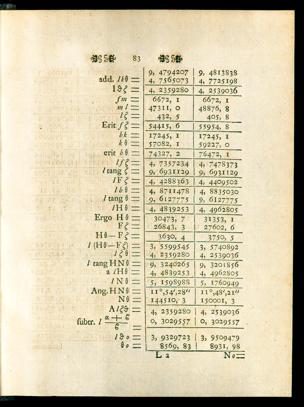 83
9, 4794207 | 9, 4813838
add. lkθ = 4, 7565073 | 4, 7725198
lϑζ = 4, 2359280 | 4, 2539036
fm = 6672, 1 | 6672, 1
ml = 47311, 0 | 48876, 8
lζ = 432, 5 | 405, 8
Erit fζ = 54415, 6 | 55954, 8
kk = 17245, 1 | 17245, 1
kθ = 57082, 1 | 59227, 0
erit θ = 74327, 2 | 76472, 1
lfζ = 4, 7357234 | 4, 7478373
l tang ζ = 9, 6931129 | 9, 6931129
lFζ = 4, 4288363 | 4, 4409502
4, 8711478 | 4, 8835030
l tang θ = 9, 6127775 | 9, 6127775
lHθ = 4, 4839253 | 4, 4962805
Ergo Hθ = 30473, 7 | 31353, 1
Fζ = 26843, 3 | 27602, 6
Hθ—Fζ = 3630, 4 | 3750, 5
l (Hθ—Fζ) = 3, 5599545 | 3, 5740892
lζθ = 4, 2359280 | 4, 2539036
l tang HNθ = 9, 3240265 | 9, 3201856
a lHθ = 4, 4839253 | 4, 4962805
lNθ = 5, 1598988 | 5, 1760949
Ang. HNθ = 11°,54',28'' | 11°,48',21''
Nθ = 144510, 3 | 150001, 3
Alζθ = 4, 2359280 | 4, 2539036
subtr. l = 0, 3029557 | 0, 3029557
lϑo = 3, 9329723 | 3, 9509479
θo = 8569, 83 | 8931, 98
L 2 No=